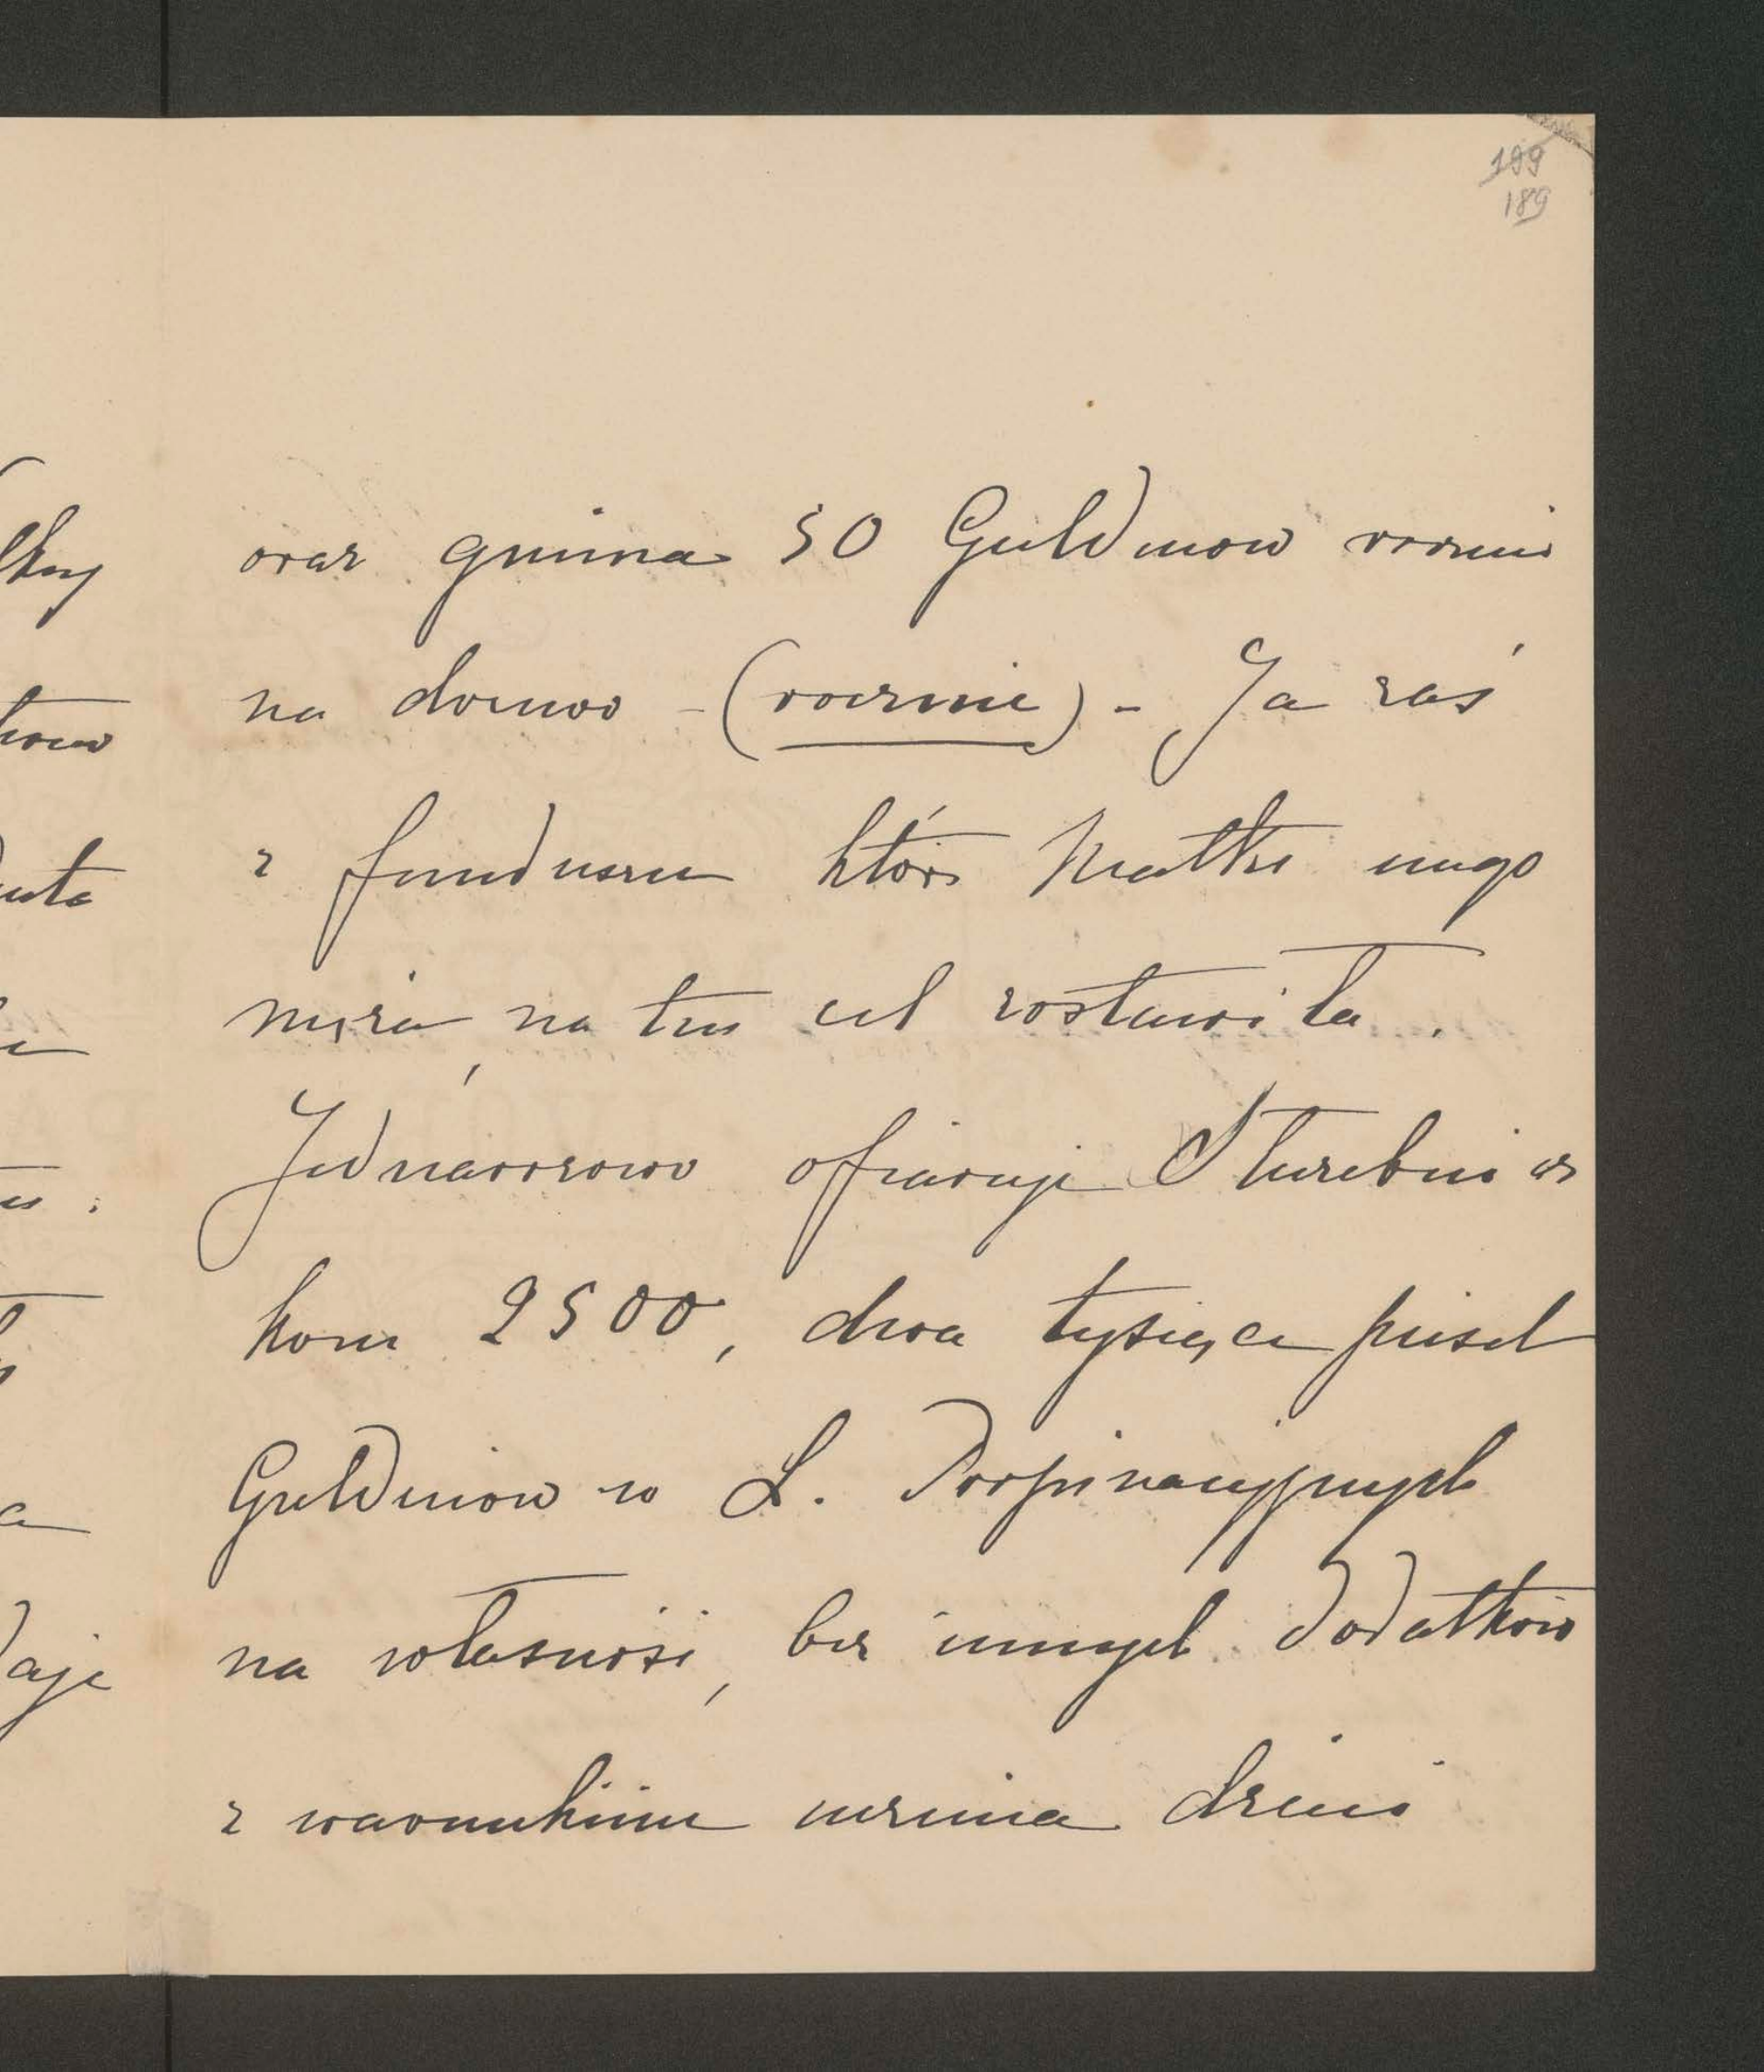 199
189
oraz gmina 50 Guldenow rocznie
na drzewo - (rocznie) - Ja zaś
z funduszu który Matka mego
męża, na ten cel zostawiła.
Jednarazowo ofiaruję Służebnicz
kom 2500, dwa tysiące pięset
Guldenow w L. Propinacyjnych
na własność, bez innych dodatków
z warunkiem uczenia dzieci
daje